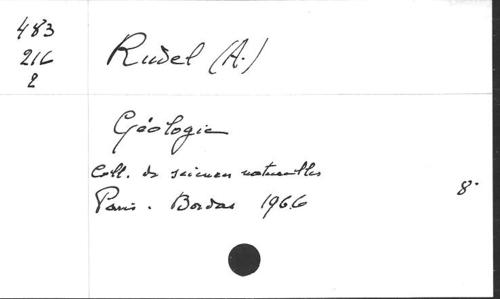 483
216
2
Rudel (A.)
Géologie
Coll. de sciences naturelles
Paris. Bordas 1966
8°